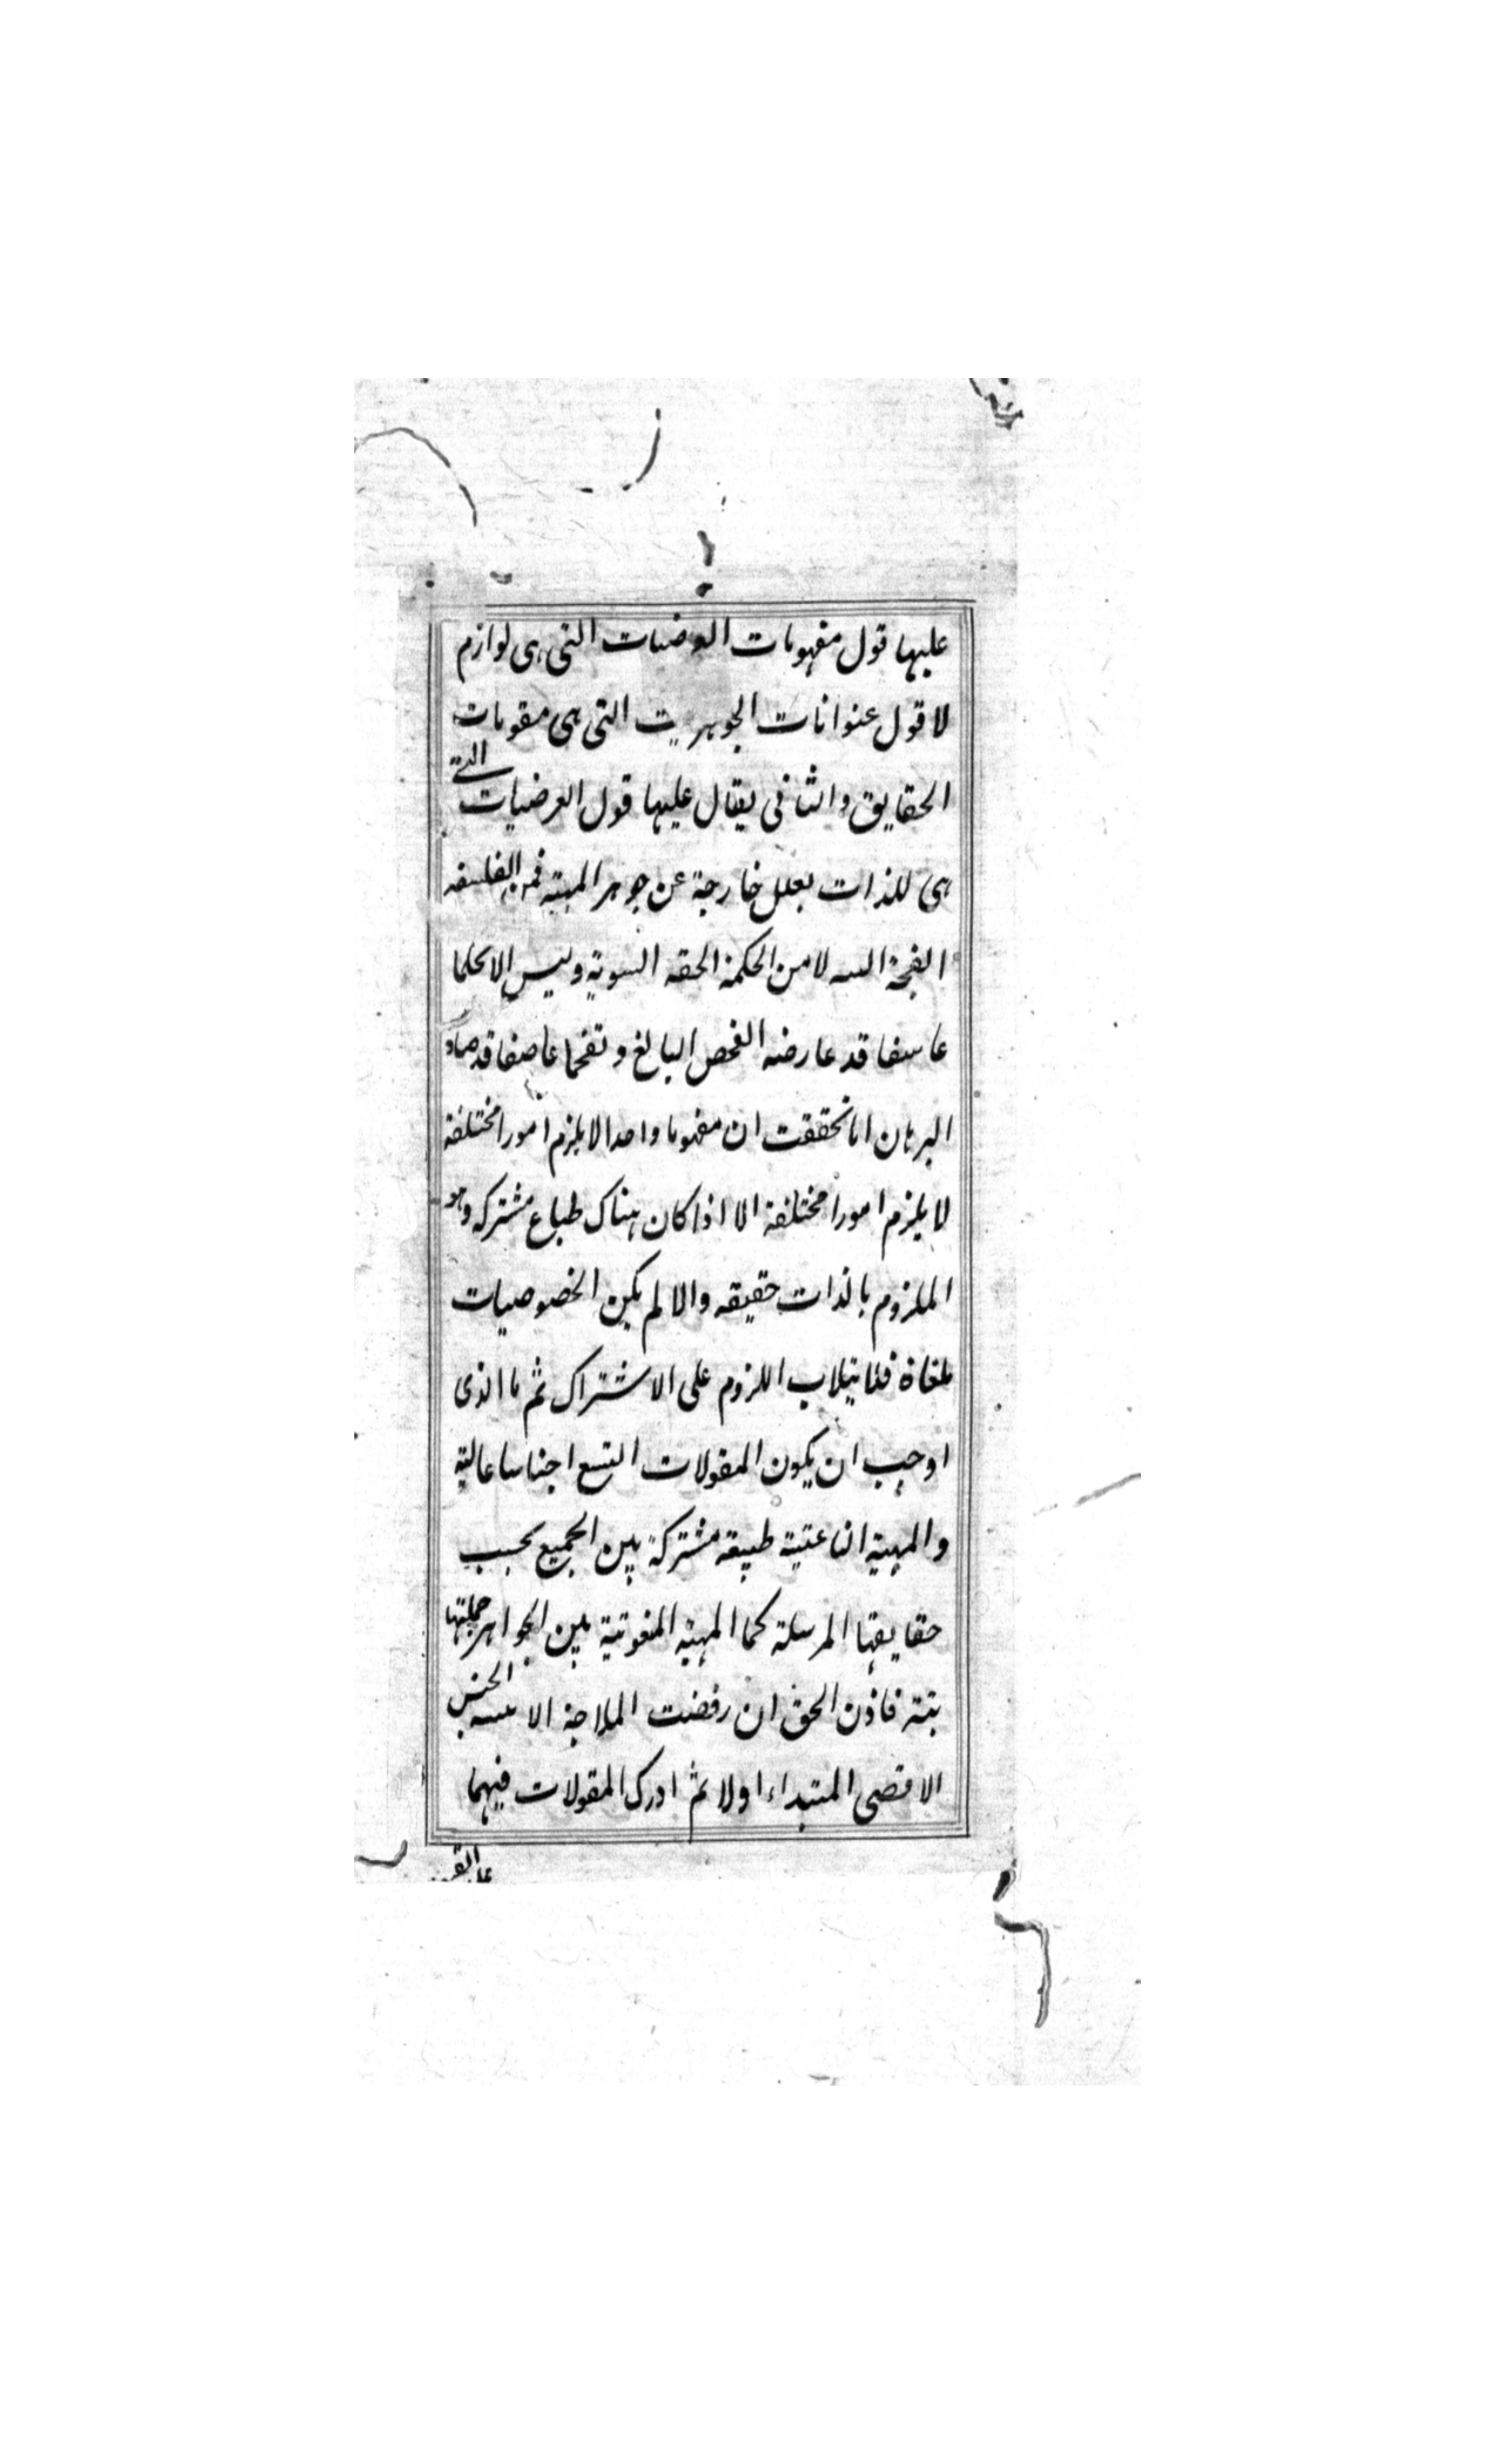 عليها قول مفهومات العرضيات التى هى لوازم
لا قول عنوانات الجوهريت التى هى مقومات
الحقايق والثانى يقال عليها قول العرضيات التى
هى للذات بعلل خارجة عن جوهر المهية فمن الفلسفه
الفجة لا من الحكمة الحقه السوية وليس الا تحكما
عاسفا قد عارضه الفحص البالغ و تقحما عاصفا قد
البرهان اما تحققت ان مفهوما واحدا لا يلزم امورا مختلفة
لا يلزم امورا مختلفة الا اذا كان هناك طباع مشتركه وهو
الملزوم بالذات حقيقه والا لم يكن الخصوصيات
ملغاة اللزوم على الاشتراك ثم ما الذى
اوجب ان يكون المقولات التسع اجناسا عالية
والمهية الناعتية طبيعه مشتركة بين الجميع بحسب
حقايقها المرسلة كما المهية المنعوتية بين الجواهر جملتها
بتة فاذن الحق ان رفضت الملاجة الجنس
الاقصى المتبداء اولا ثم ادرك المقولات فيهما